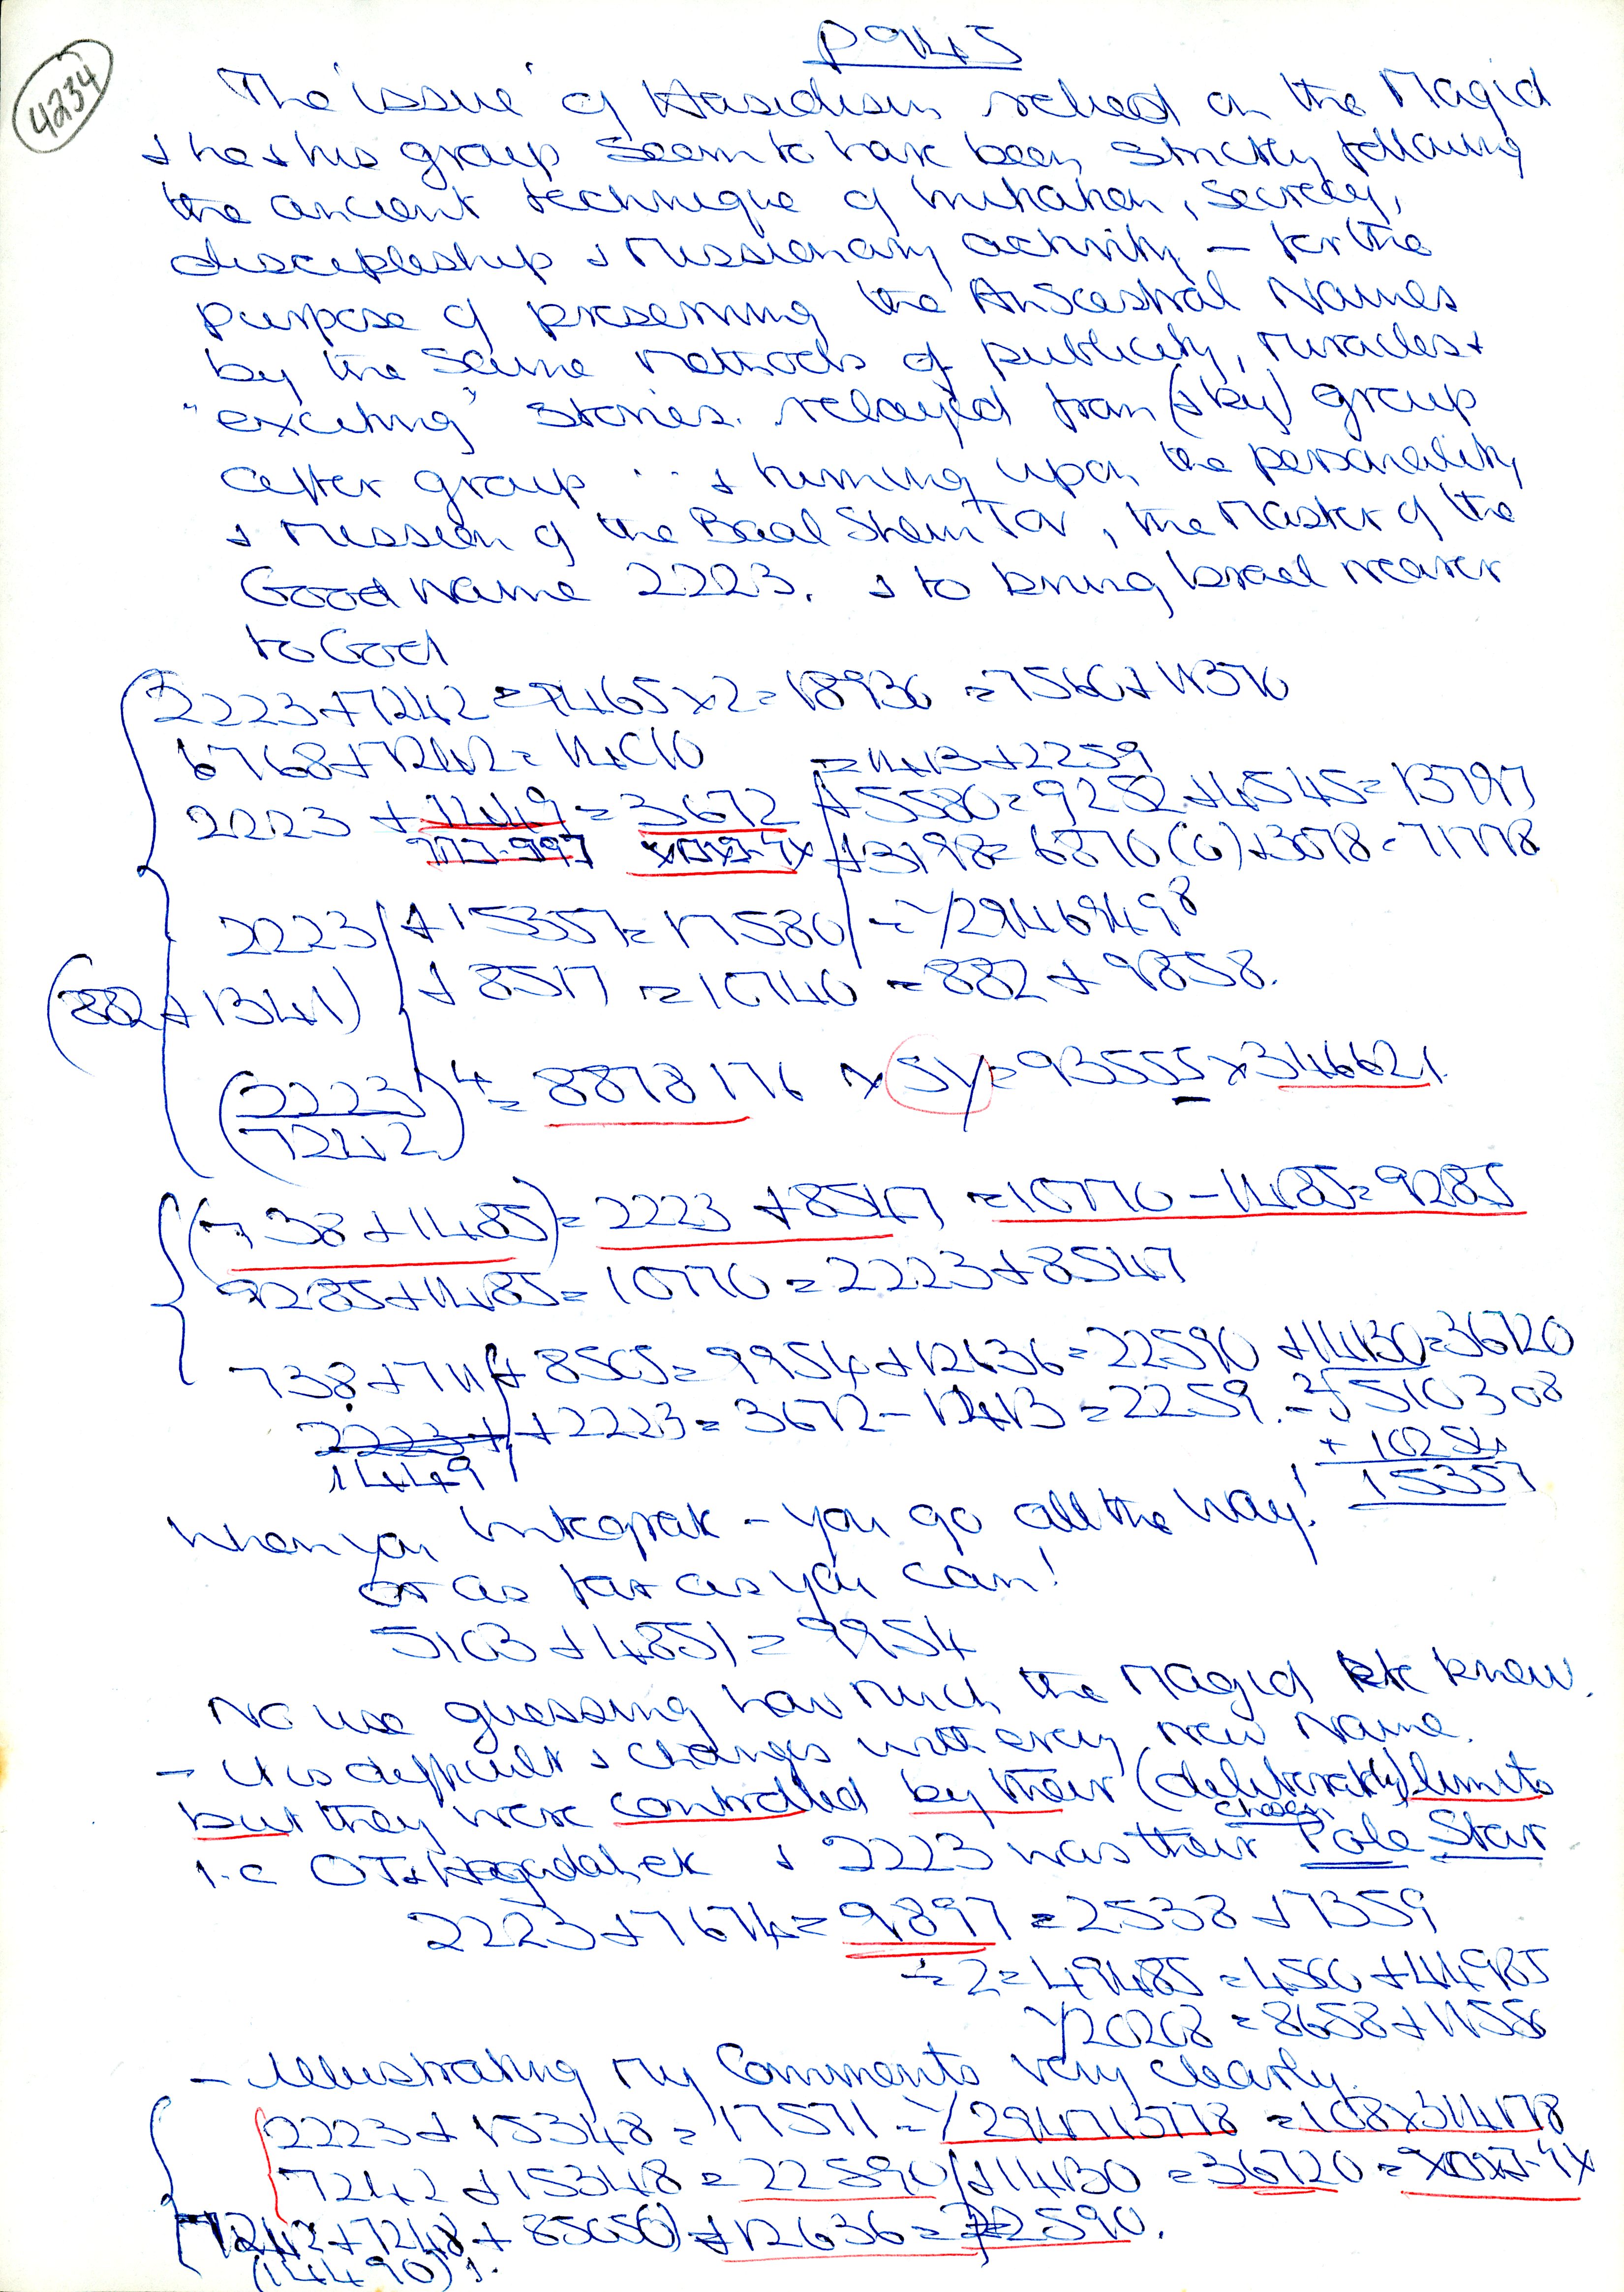 4234
P9145
The 'issue' of Hasidism relied on the Magid
& he & his group seem to have been strictly following
the ancient technique of Initiation, secrecy,
discipleship & Missionary activity – for the
purpose of preserving the Anscestral Names
by the same Methods of publicity, Miracles &
"exciting" stories. relayed from (& by) group
after group .. & turning upon the personality
& Mission of the Baal Shem Tov, the Master of the
Good Name 2223. & to bring Israel nearer
to God
2223+7242=9465×2=18930 =7560+11370
6768+7242=14010 =1413+2259
2223 + 1449 = 3672 +5580=9252+4545=13797
2223 +15357=17580
(882+1341) +8517 =10740 =882+9858.
(2223/7242)⁴= 8878176 × =93555×346621.
(738+1485)=2223+8547 =10770-1485=9285
9285+1485=10770=2223+8547
738+711+8505=9954+12636=22590 +14130=36720
1449 +2223=3672-1413=2259.
+ 10254
15357
When you Integrate – you go all the way!
or as far as you can!
5103+4851=9954
No use guessing how Much the Magid knew.
– It is difficult & changes with every new Name.
but they were controlled by their (deliberately chosen) limits
i.e OT & Hagadah & 2223 was their Pole Star
2223+7674=9897=2538+7359
÷2=49485=4500+44985
1/20208=8658+11550
– Illustrating My Comments very clearly.
2223+15348=17571= =108×
7242+15348=22590+14130=36720=
7242+7248+ +12636=22590.
(14490)